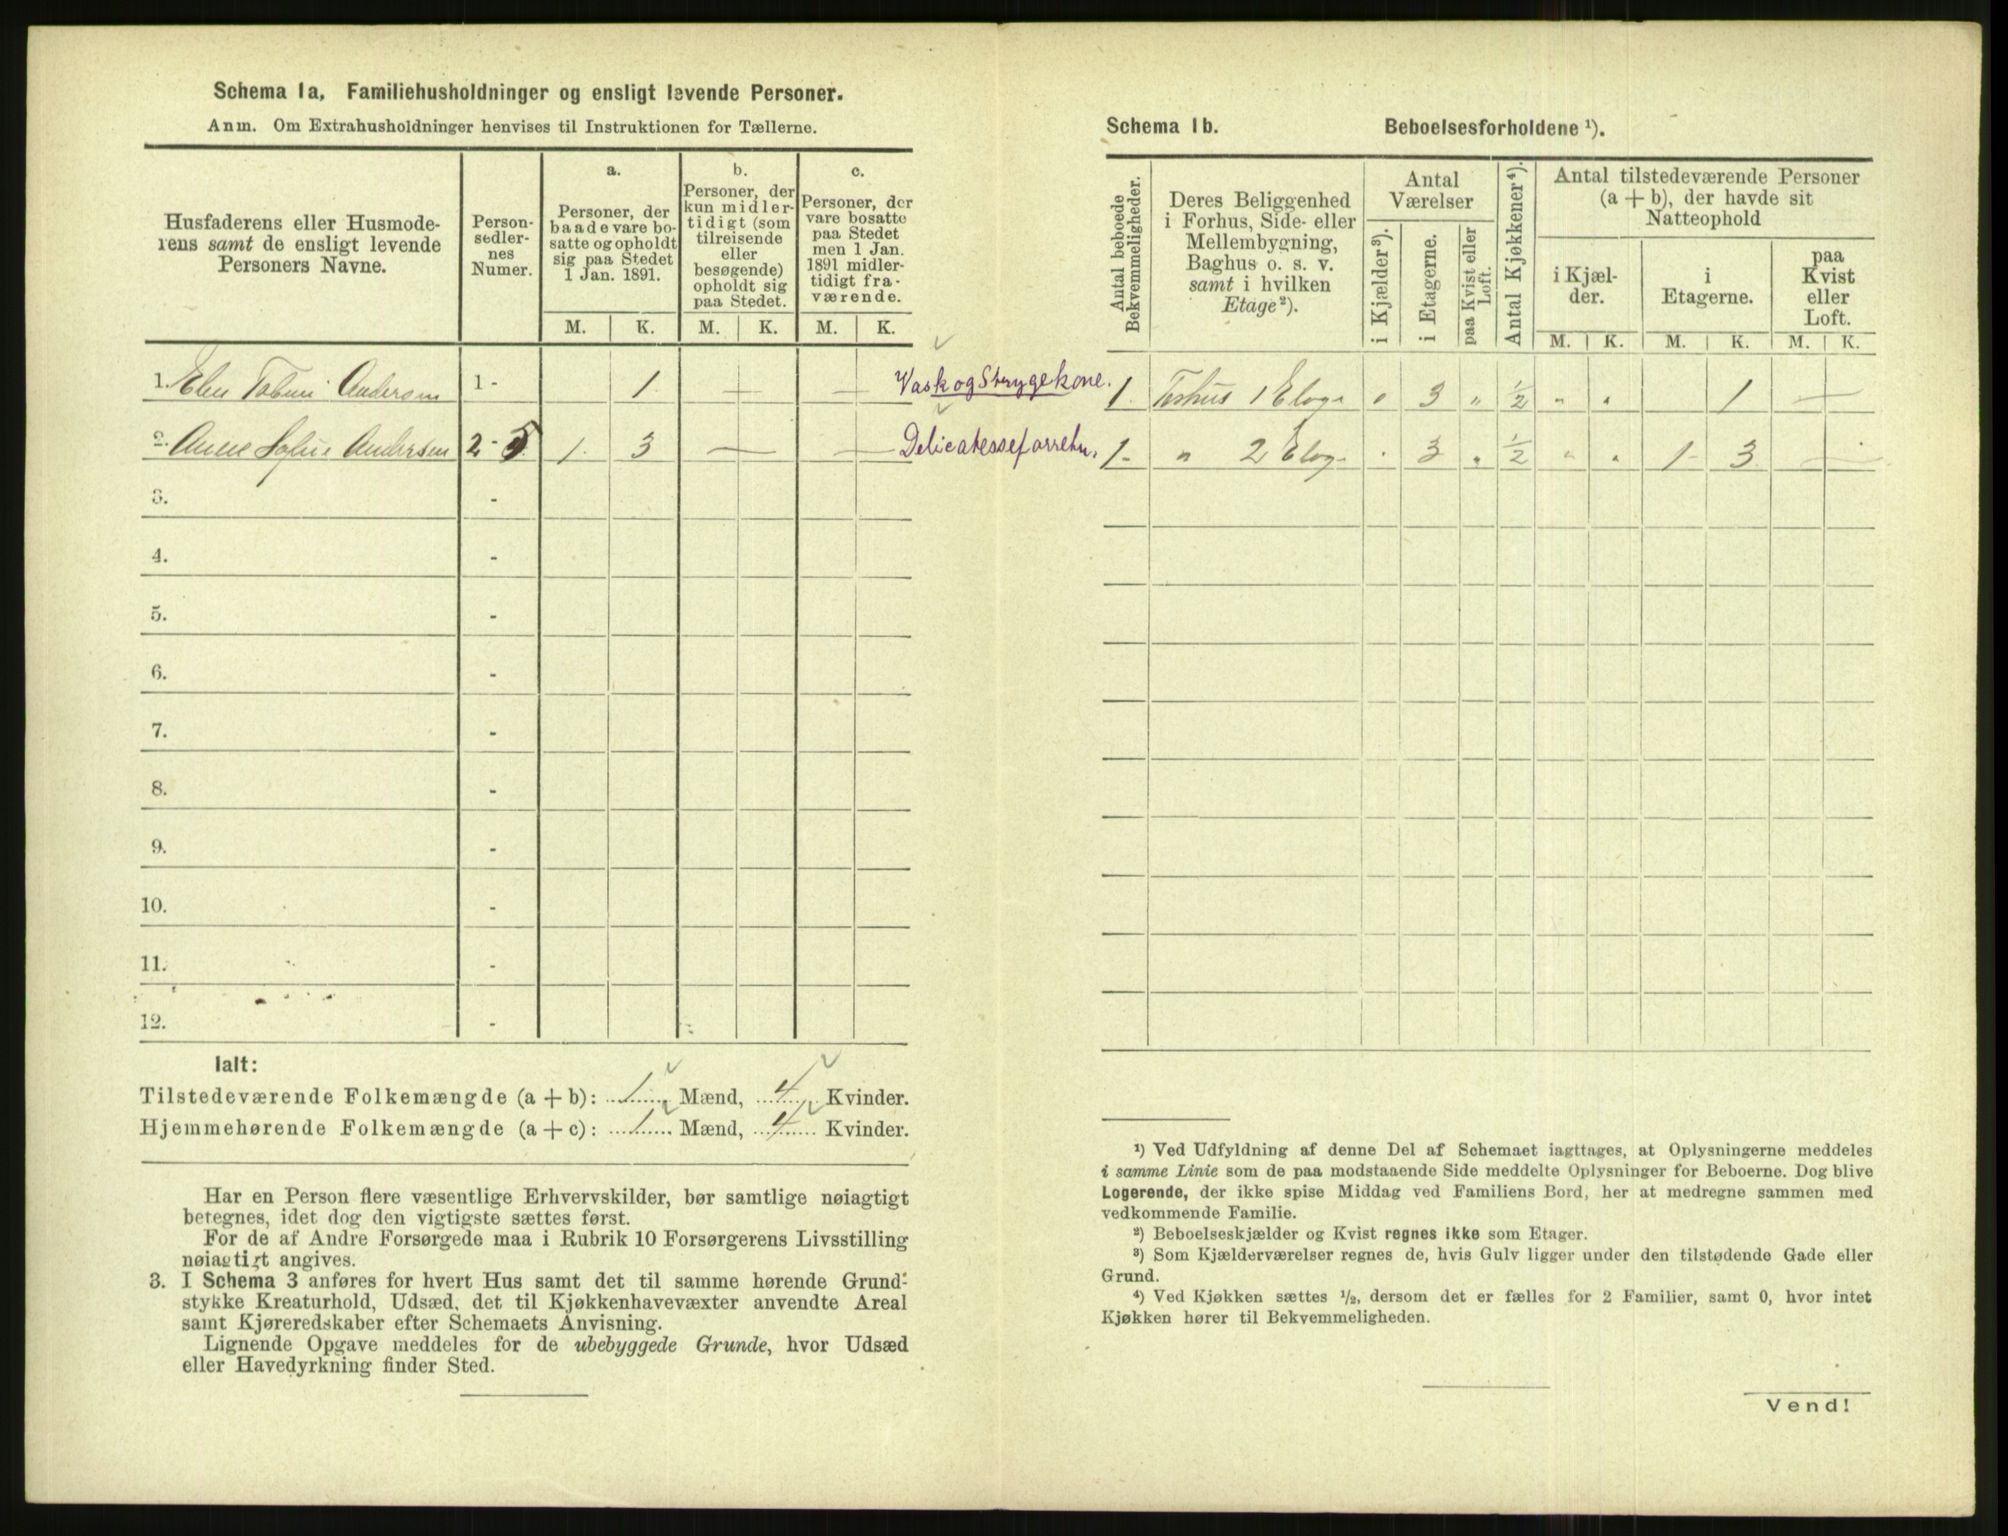 Schema 1a. Familiehusholdninger og ensligt levende Personer.
Anm. Om Extrahusholdninger henvises til Instruktionen for Tællerne.
Husfaderens eller Husmode-
rens samt de ensligt levende
Personers Navne.
Person-
sedler-
nes
Numer.
a.
Personer, der
baade vare bo-
satte og opholdt
sig paa Stedet
1 Jan. 1891.
b.
Personer, der
kun midler-
tidigt (som
tilreisende
eller
besøgende)
opholdt sig
paa Stedet.
c.
Personer, der
vare bosatte
paa Stedet
men 1 Jan.
1891 midler-
tidigt fra-
værende.
M. K. M. K. M. K.
1. Andersen 1 - 1 Vask og Strygekone.
2. Anne Andersen 2 - 5 1 3 Delicatesseforretn.
3. -
4. -
5. -
6. -
7. -
8. -
9. -
10. -
11. -
12. -
Ialt:
Tilstedeværende Folkemængde (a + b): 1 Mænd, 4 Kvinder.
Hjemmehørende Folkemængde (a + c): 1 Mænd, 4 Kvinder.
Har en Person flere væsentlige Erhvervskilder, bør samtlige nøiagtigt
betegnes, idet dog den vigtigste sættes først.
For de af Andre Forsørgede maa i Rubrik 10 Forsørgerens Livsstilling
nøiagtigt angives.
3. I Schema 3 anføres for hvert Hus samt det til samme hørende Grund-
stykke Kreaturhold, Udsæd, det til Kjøkkenhavevæxter anvendte Areal
samt Kjøreredskaber efter Schemaets Anvisning.
Lignende Opgave meddeles for de ubebyggede Grunde, hvor Udsæd
eller Havedyrkning finder Sted.
Schema 1b. Beboelsesforholdene ¹).
Antal beboede
Bekvemmeligheder.
Deres Beliggenhed
i Forhus, Side- eller
Mellembygning,
Baghus o. s. v.
samt i hvilken
Etage²).
Antal
Værelser
i Kjælder³).
i Etagerne.
paa Kvist eller
Loft.
Antal Kjøkkener⁴).
Antal tilstedeværende Personer
(a + b), der havde sit
Natteophold
i Kjæl-
der.
i
Etagerne.
paa
Kvist
eller
Loft.
M. K. M. K. M. K.
1. Forhus 1 Etage " 3 " 1/2 " " 1
1 - " 2 Etage " 3 " 1/2 " " 1 3
¹) Ved Udfyldning af denne Del af Schemaet iagttages, at Oplysningerne meddeles
i samme Linie som de paa modstaaende Side meddelte Oplysninger for Beboerne. Dog blive
Logerende, der ikke spise Middag ved Familiens Bord, her at medregne sammen med
vedkommende Familie.
²) Beboelseskjælder og Kvist regnes ikke som Etager.
³) Som Kjælderværelser regnes de, hvis Gulv ligger under den tilstødende Gade eller
Grund.
⁴) Ved Kjøkken sættes ½, dersom det er fælles for 2 Familier, samt 0, hvor intet
Kjøkken hører til Bekvemmeligheden.
Vend!